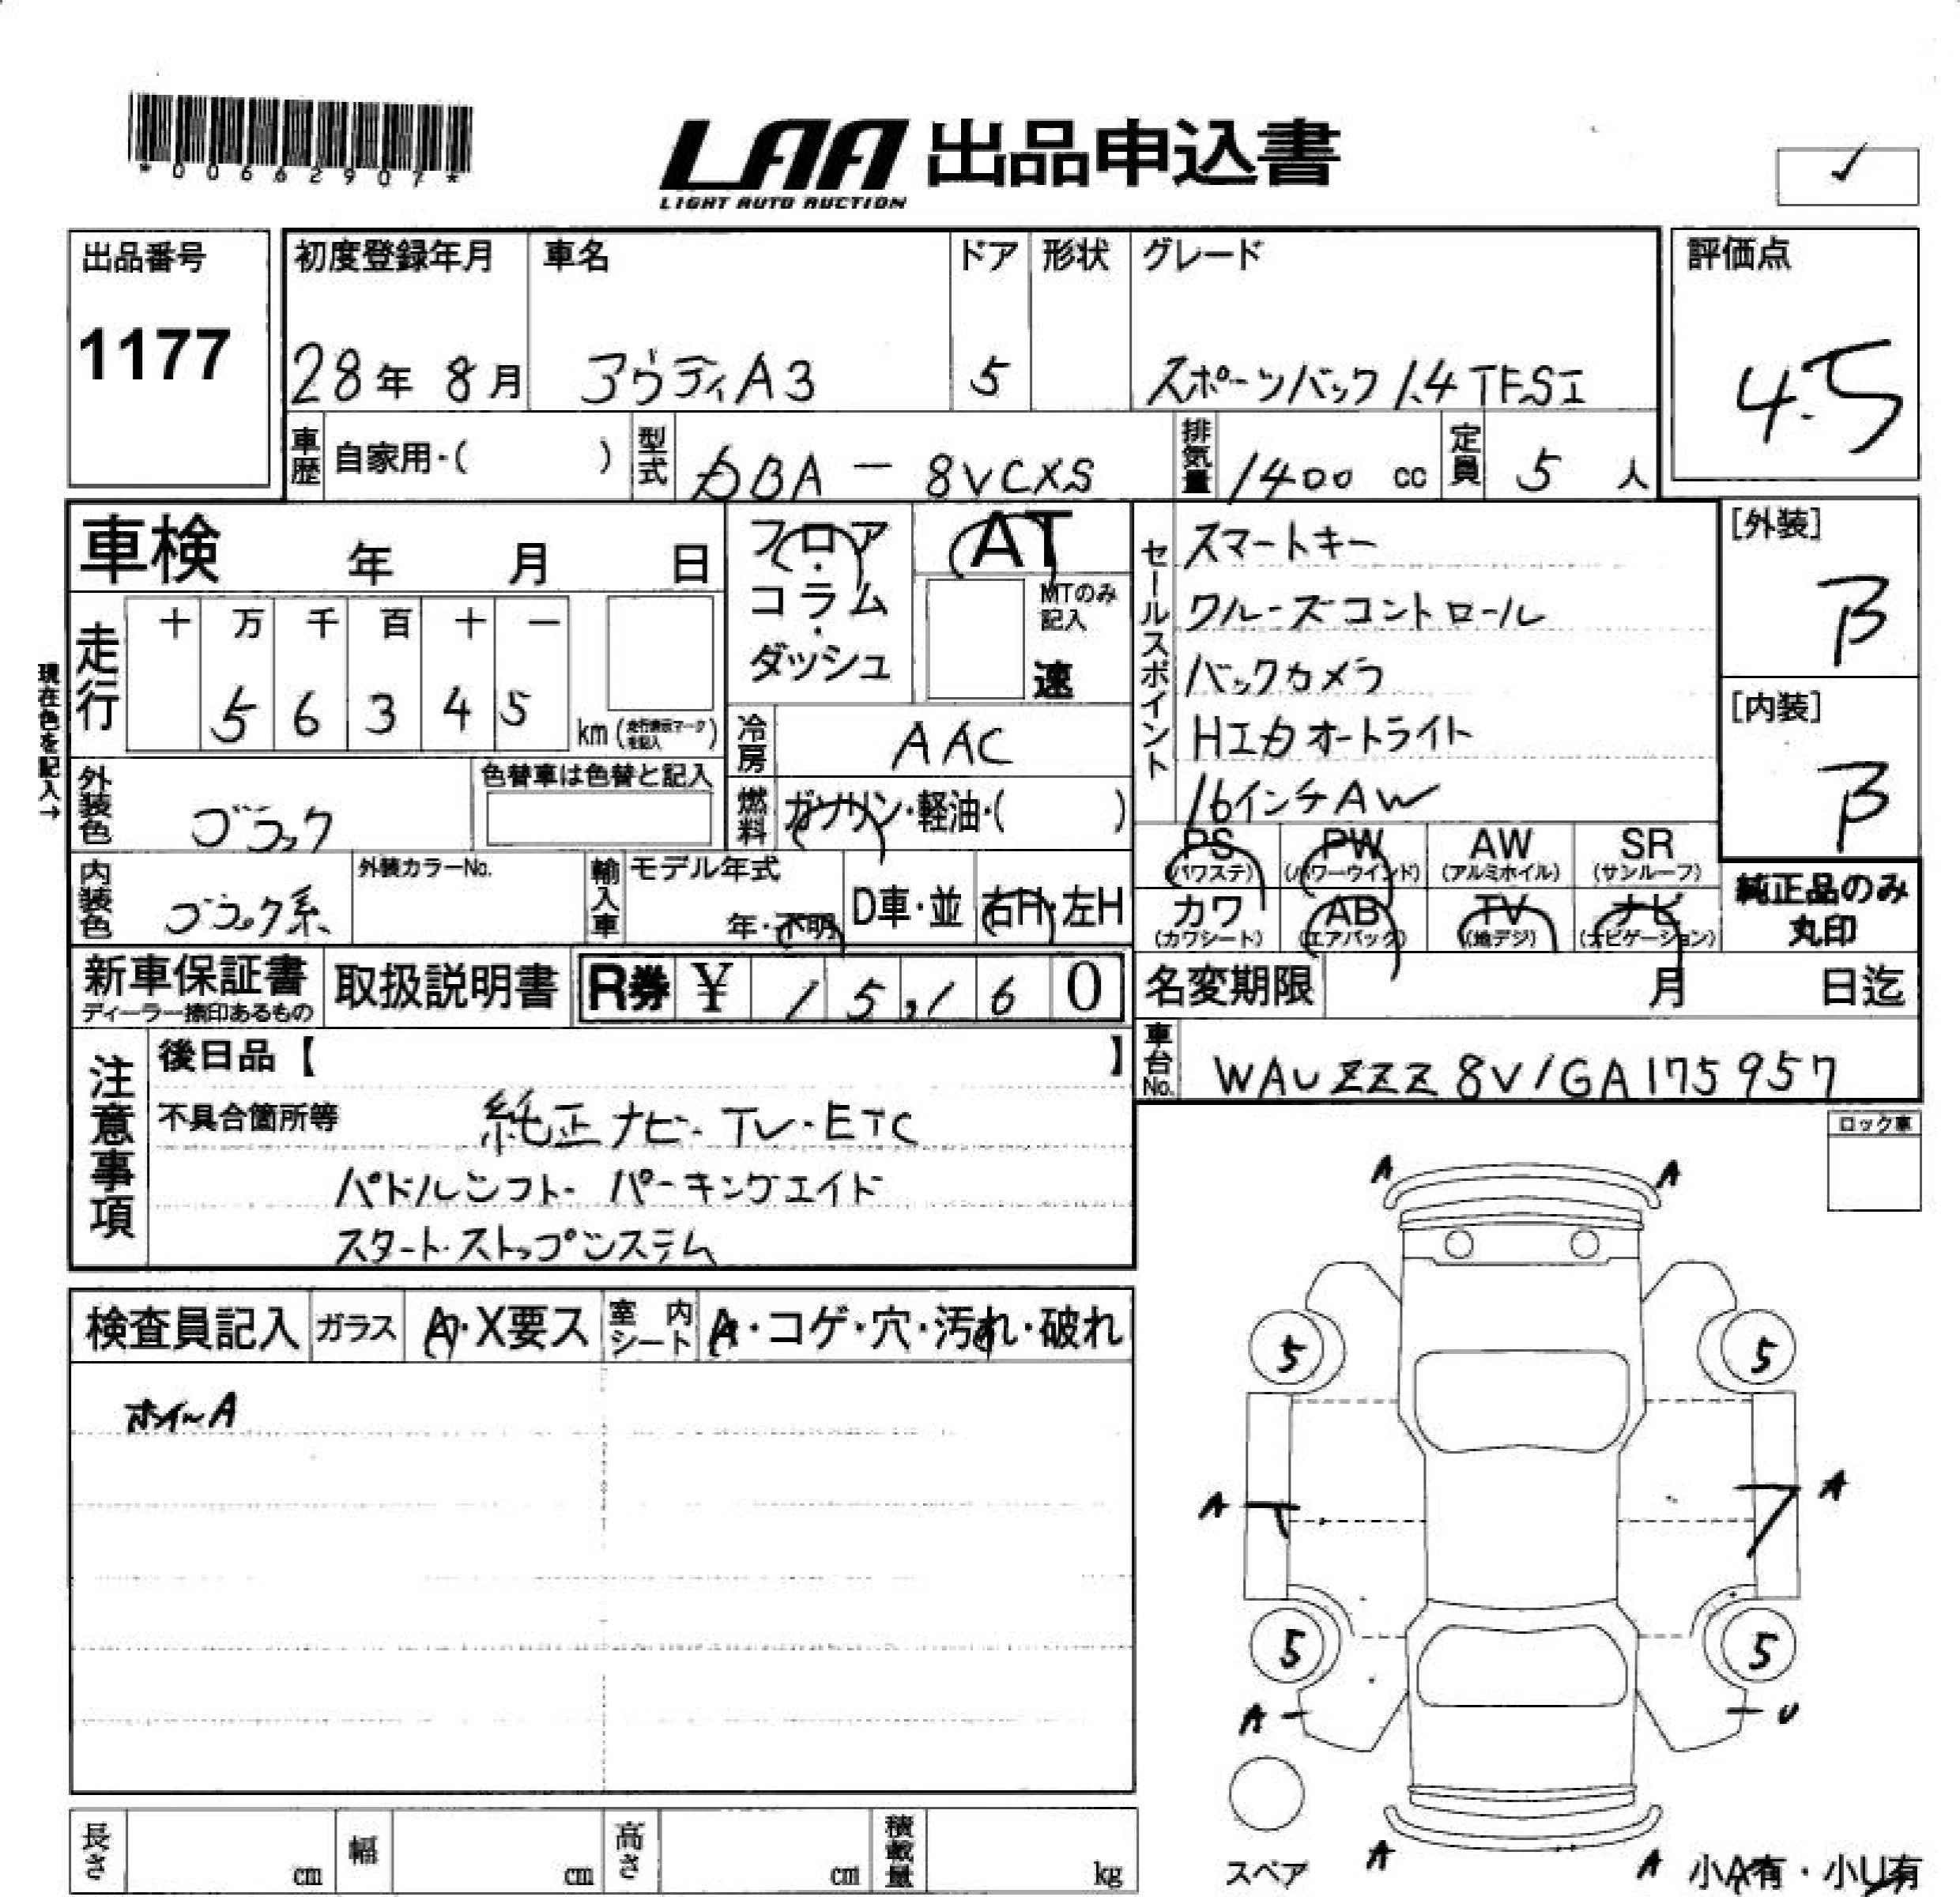 *00662907*
LAA 出品申込書
LIGHT AUTO AUCTION
✓
出品番号
1177
初度登録年月
28年 8月
車名
アウディA3
ドア
5
形状
グレード
スポーツバック 1.4 TFSI
評価点
4.5
車歴 自家用・( )
型式 DBA - 8VCXS
排気量 1400 cc
定員 5 人
車検 年 月 日
フロア・コラム・ダッシュ
AT
MTのみ記入
速
セールスポイント
スマートキー
クルーズコントロール
バックカメラ
Hエカ オートライト
16インチAW
[外装]
B
[内装]
B
現在色を記入→
走行
十 万 千 百 十 一
5 6 3 4 5
km (走行表示マークを記入)
冷房 AAC
燃料 ガソリン・軽油・( )
外装色 ブラック
色替車は色替と記入
内装色 ブラック系
外装カラーNo.
輸入車
モデル年式
年・不明
D車・並
右H・左H
PS (パワステ)
PW (パワーウインド)
AW (アルミホイル)
SR (サンルーフ)
カワ (カワシート)
AB (エアバック)
TV (地デジ)
ナビ (ナビゲーション)
純正品のみ丸印
新車保証書
ディーラー捺印あるもの
取扱説明書
R券 ¥ 15,160
名変期限 月 日迄
車台No. WAUZZZ8V1GA175957
注意事項
後日品【 】
不具合箇所等 純正ナビ・TV・ETC
パドルシフト・パーキングエイド
スタート・ストップシステム
ロック車
検査員記入
ガラス A・X要ス
室内シート A・コゲ・穴・汚れ・破れ
ホイールA
A A
5 5
A A
5 5
A U
A A
スペア
小A有・小U有
長さ cm
幅 cm
高さ cm
積載量 kg